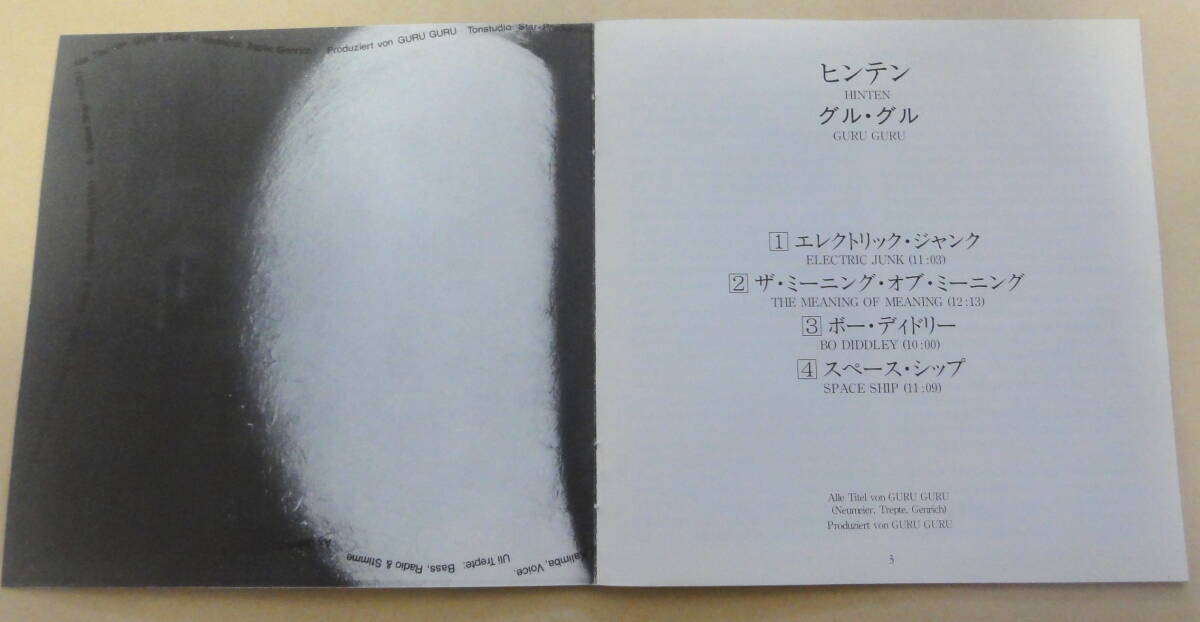 Produziert von GURU GURU Tonstudio
Kalimba, Voice.
Uli Trepte: Bass, Radio & Stimme
ヒンテン
HINTEN
グル・グル
GURU GURU
1 エレクトリック・ジャンク
ELECTRIC JUNK (11:03)
2 ザ・ミーニング・オブ・ミーニング
THE MEANING OF MEANING (12:13)
3 ボー・ディドリー
BO DIDDLEY (10:00)
4 スペース・シップ
SPACE SHIP (11:09)
Alle Titel von GURU GURU
(Neumeier, Trepte, Genrich)
Produziert von GURU GURU
3